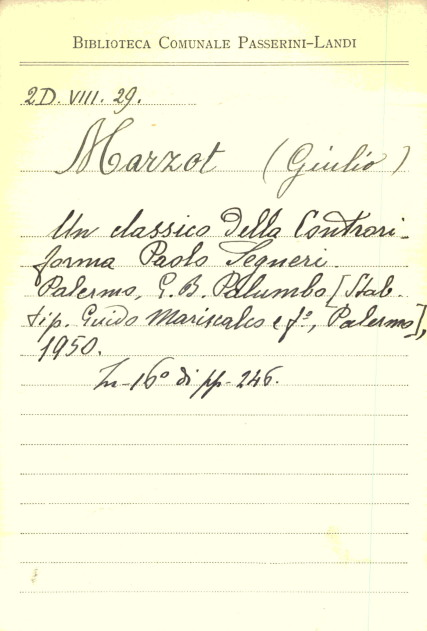 Biblioteca Comunale Passerini-Landi
2D. VIII. 29.
Marzot (Giulio)
Un classico della Controri-
forma Paolo Segneri.
Palermo, G. B. Palumbo [Stab.
tip. Guido Mariscalco e fº, Palermo],
1950.
In-16º di pp. 246.